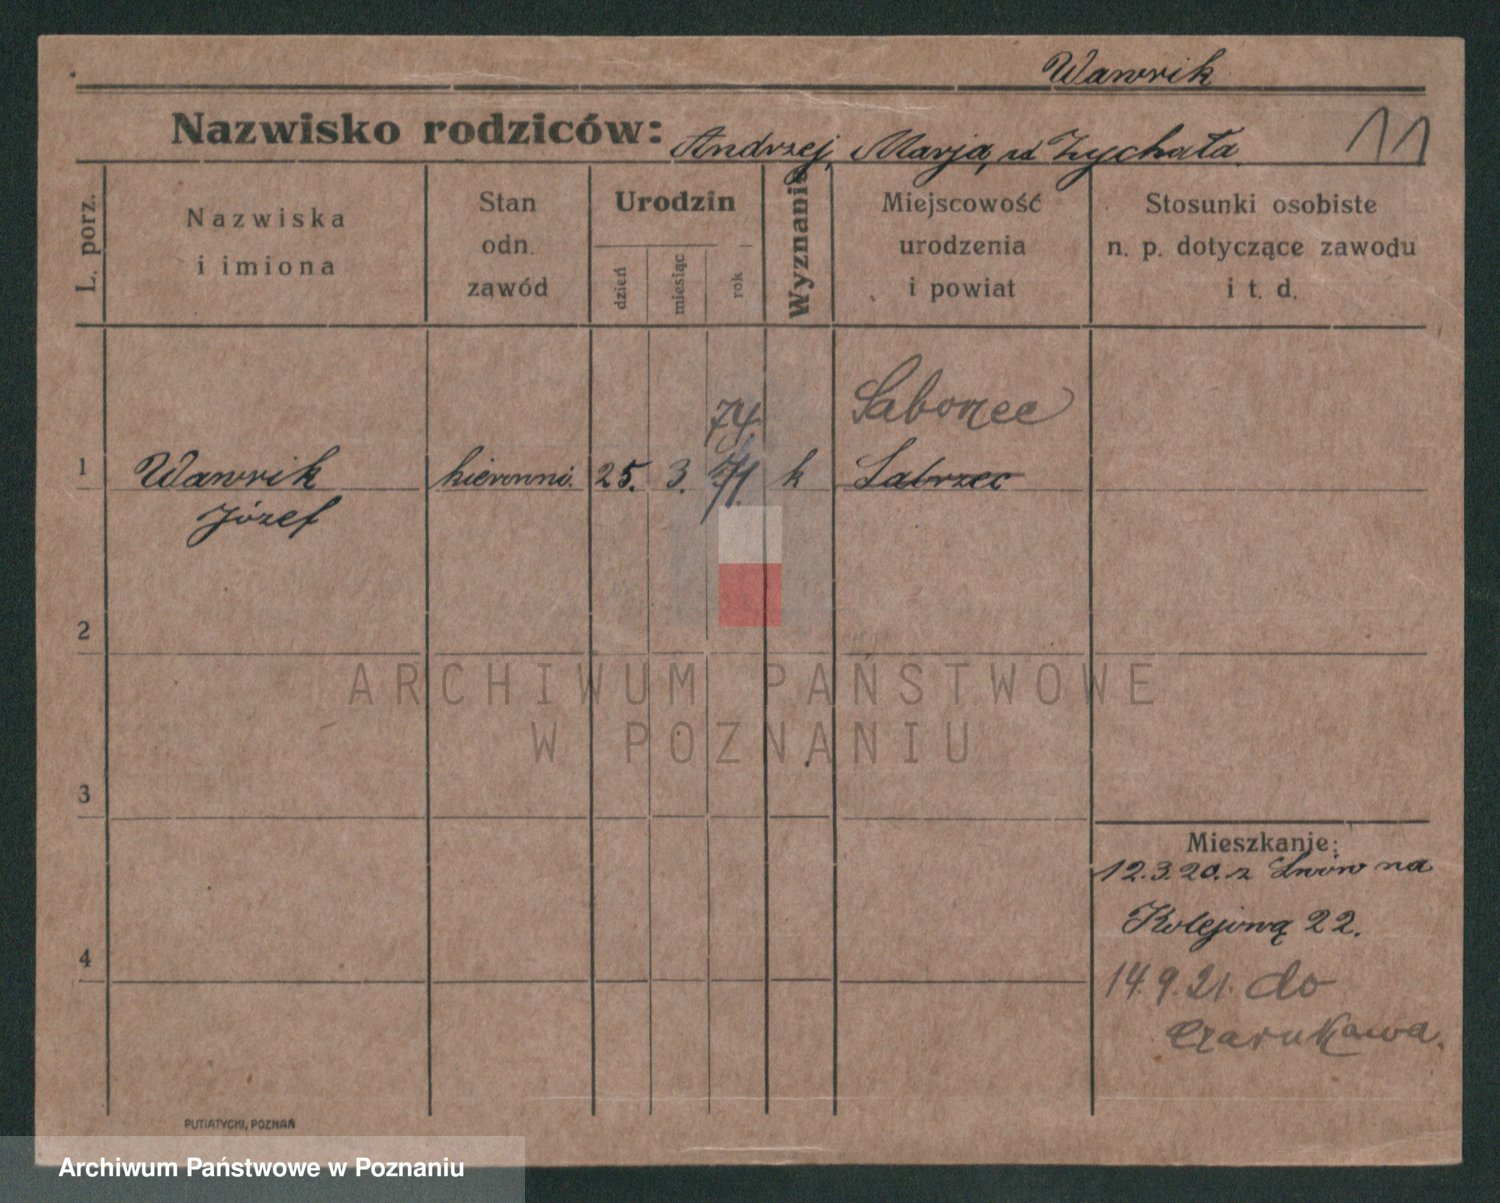 Wawrik
Nazwisko rodziców: Andrzej, Marja, ud Zychała
11
L. porz.
Nazwiska
i imiona
Stan
odn.
zawód
Urodzin
dzień
miesiąc
rok
Wyznanie
Miejscowość
urodzenia
i powiat
Stosunki osobiste
n. p. dotyczące zawodu
i t. d.
74.
1 Wawrik 25. 3. 71. k Sabrzec
Józef
2
3
4
Mieszkanie:
12.3.20. z Lwów na
Kolejową 22.
14.9.21. do
Czarnkowa.
PUTIATYCKI, POZNAŃ
ARCHIWUM PAŃSTWOWE
W POZNANIU
Archiwum Państwowe w Poznaniu